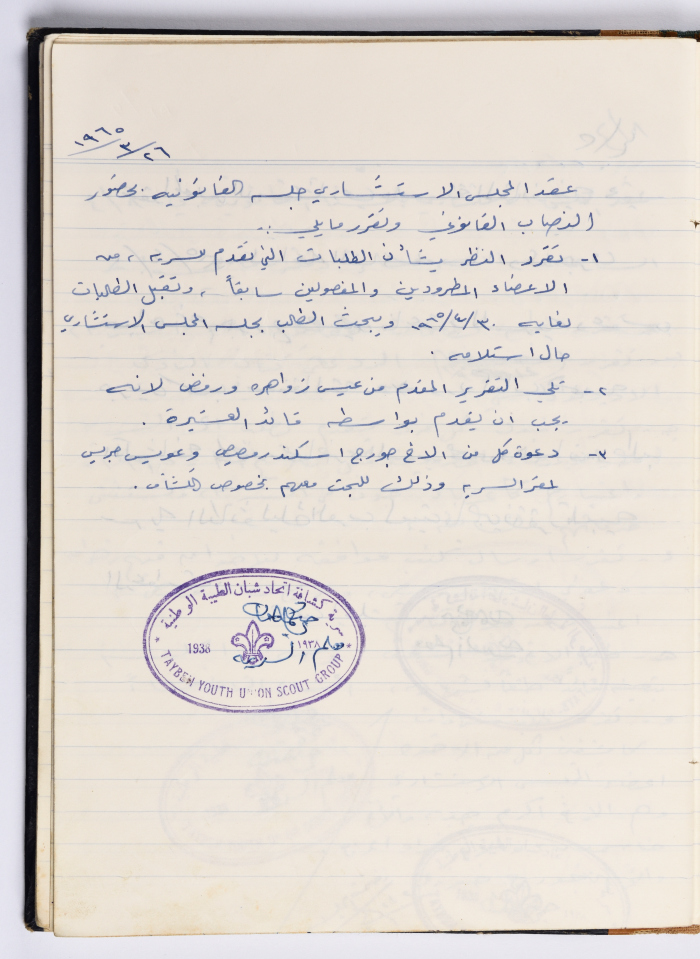 ١٩٦٥/٣/٢٦
عقد المجلس الاستشاري جلسه القانونيه بحضور
النصاب القانوني وتقرر مايلي :-
١- تقرر النظر بشأن الطلبات التي تقدم للسريه، من
الاعضاء المطرودين والمفصولين سابقاً، وتقبل الطلبات
لغايه ١٩٦٥/٤/٣٠ ويبحث الطلب بجلسه المجلس الاستشاري
حال استلامه .
٢- تلي التقرير المقدم من عيسى زواهره ورفض لانه
يجب ان يقدم بواسطه قائد العشيرة .
٣- دعوة كل من الاخ جورج اسكندر وعويس جريس
لمقر السريه وذلك للبحث معهم بخصوص الكشاف .
سرية كشافة اتحاد شبان الطيبة الوطنية
1938 ١٩٣٨
السريه
TAYBEH YOUTH UNION SCOUT GROUP